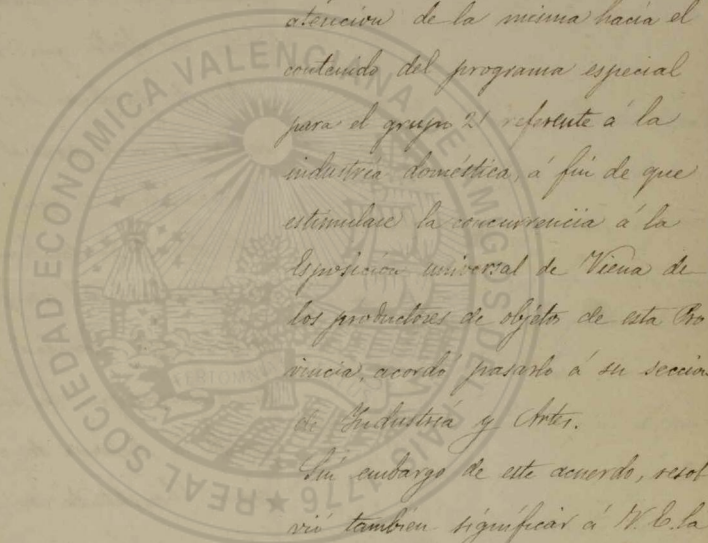 atencion de la misma hacia el
contenido del programa especial
para el grupo 21 referente á la
industria doméstica, á fin de que
estimulase la concurrencia á la
Esposicion universal de Viena de
los productores de objetos de esta Pro
vincia, acordó pasarlo á su seccion
de Industria y Artes.
Sin embargo de este acuerdo, resol
vió tambien significar á V. E. la
REAL SOCIEDAD ECONOMICA VALENCIANA DE AMIGOS DEL PAIS 1776
FERTOMNIA